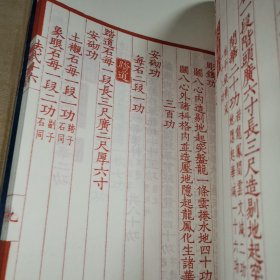 段階頭廣六寸長三尺造剔地起
彫鐫功
闘八心內造剔地起突盤龍一條雲捲水地四十功
闘八心外諸科格內並造壓地隱起龍鳳化生諸華
三百功
安砌功
每石二段一功
踏道
踏道石每一段長三尺廣二尺厚六寸
安砌功
土襯石每一段一功踏子石同
象眼石每一段二功副子石同
法式十六
九